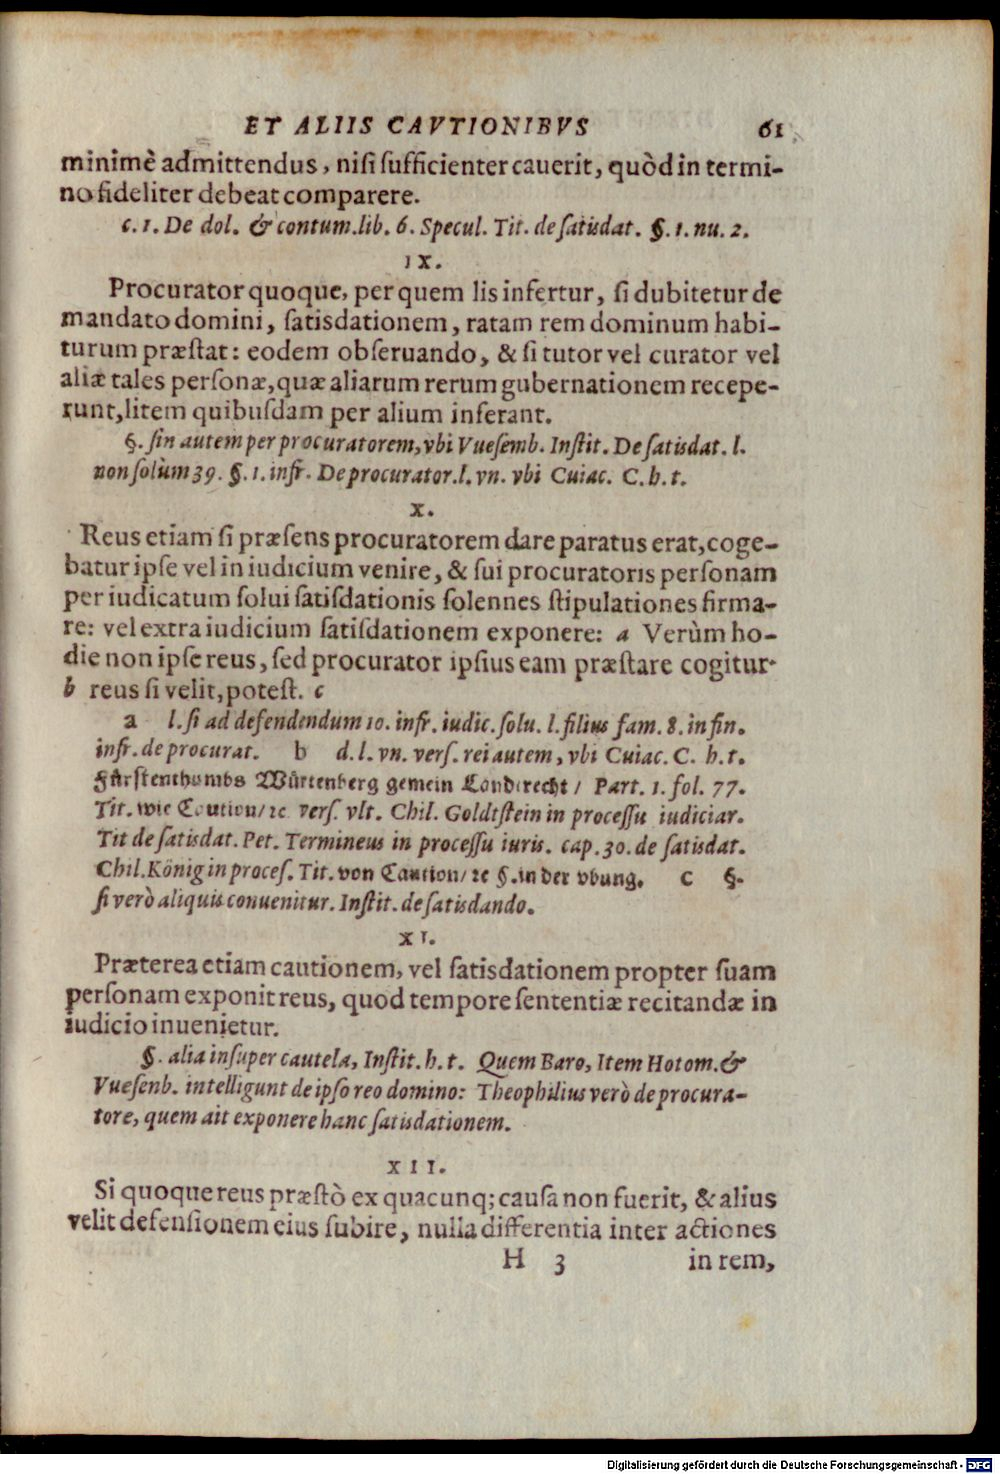 ET ALIIS CAVTIONIBVS 61
minimè admittendus, nisi sufficienter cauerit, quòd in termi-
no fideliter debeat comparere.
c. 1. De dol. & contum. lib. 6. Specul. Tit. de satisdat. §. 1. nu. 2.
IX.
Procurator quoque, per quem lis infertur, si dubitetur de
mandato domini, satisdationem, ratam rem dominum habi-
turum præstat: eodem obseruando, & si tutor vel curator vel
aliæ tales personæ, quæ aliarum rerum gubernationem recepe-
runt, litem quibusdam per alium inferant.
§. sin autem per procuratorem, vbi Vuesemb. Instit. De satisdat. l.
non solùm 39. §. 1. infr. De procurator. l. vn. vbi Cuiac. C. h. t.
X.
Reus etiam si præsens procuratorem dare paratus erat, coge-
batur ipse vel in iudicium venire, & sui procuratoris personam
per iudicatum solui satisdationis solennes stipulationes firma-
re: vel extra iudicium satisdationem exponere: a Verùm ho-
die non ipse reus, sed procurator ipsius eam præstare cogitur
b reus si velit, potest. c
a l. si ad defendendum 10. infr. iudic. solu. l. filius fam. 8. in fin.
infr. de procurat. b d. l. vn. vers. rei autem, vbi Cuiac. C. h. t.
Fürstenthumbs Würtenberg gemein Landtrecht / Part. 1. fol. 77.
Tit. wie Caution / ꝛc vers. vlt. Chil. Goldtstein in processu iudiciar.
Tit de satisdat. Pet. Termineus in processu iuris. cap. 30. de satisdat.
Chil. König in proces. Tit. von Caution / ꝛc §. in der vbung. c §.
si verò aliquis conuenitur. Instit. de satisdando.
XI.
Præterea etiam cautionem, vel satisdationem propter suam
personam exponit reus, quod tempore sententiæ recitandæ in
iudicio inuenietur.
§. alia insuper cautela, Instit. h. t. Quem Baro, Item Hotom. &
Vuesenb. intelligunt de ipso reo domino: Theophilius verò de procura-
tore, quem ait exponere hanc satisdationem.
XII.
Si quoque reus præstò ex quacunq; causa non fuerit, & alius
velit defensionem eius subire, nulla differentia inter actiones
H 3 in rem,
Digitalisierung gefördert durch die Deutsche Forschungsgemeinschaft - DFG